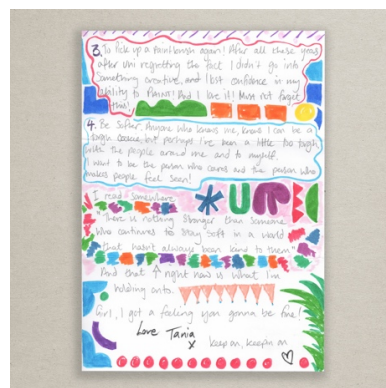 3. To pick up a paintbrush again! After all these years
after uni regretting the fact I didn't go into
something creative, and I lost confidence in my
ability to PAINT! And I love it! Must not forget
that!
4. Be softer. Anyone who knows me, knows I can be a
tough cookie, but perhaps I've been a little too tough
with the people around me and to myself.
I want to be the person who cares and the person who
makes people feel seen!
I read somewhere
"There is nothing stronger than someone
who continues to stay soft in a world
that hasn't always been kind to them"
And that right now is what I'm
holding onto.
Girl, I got a feeling you gonna be fine!
Love Tania
x
keep on, keepin on